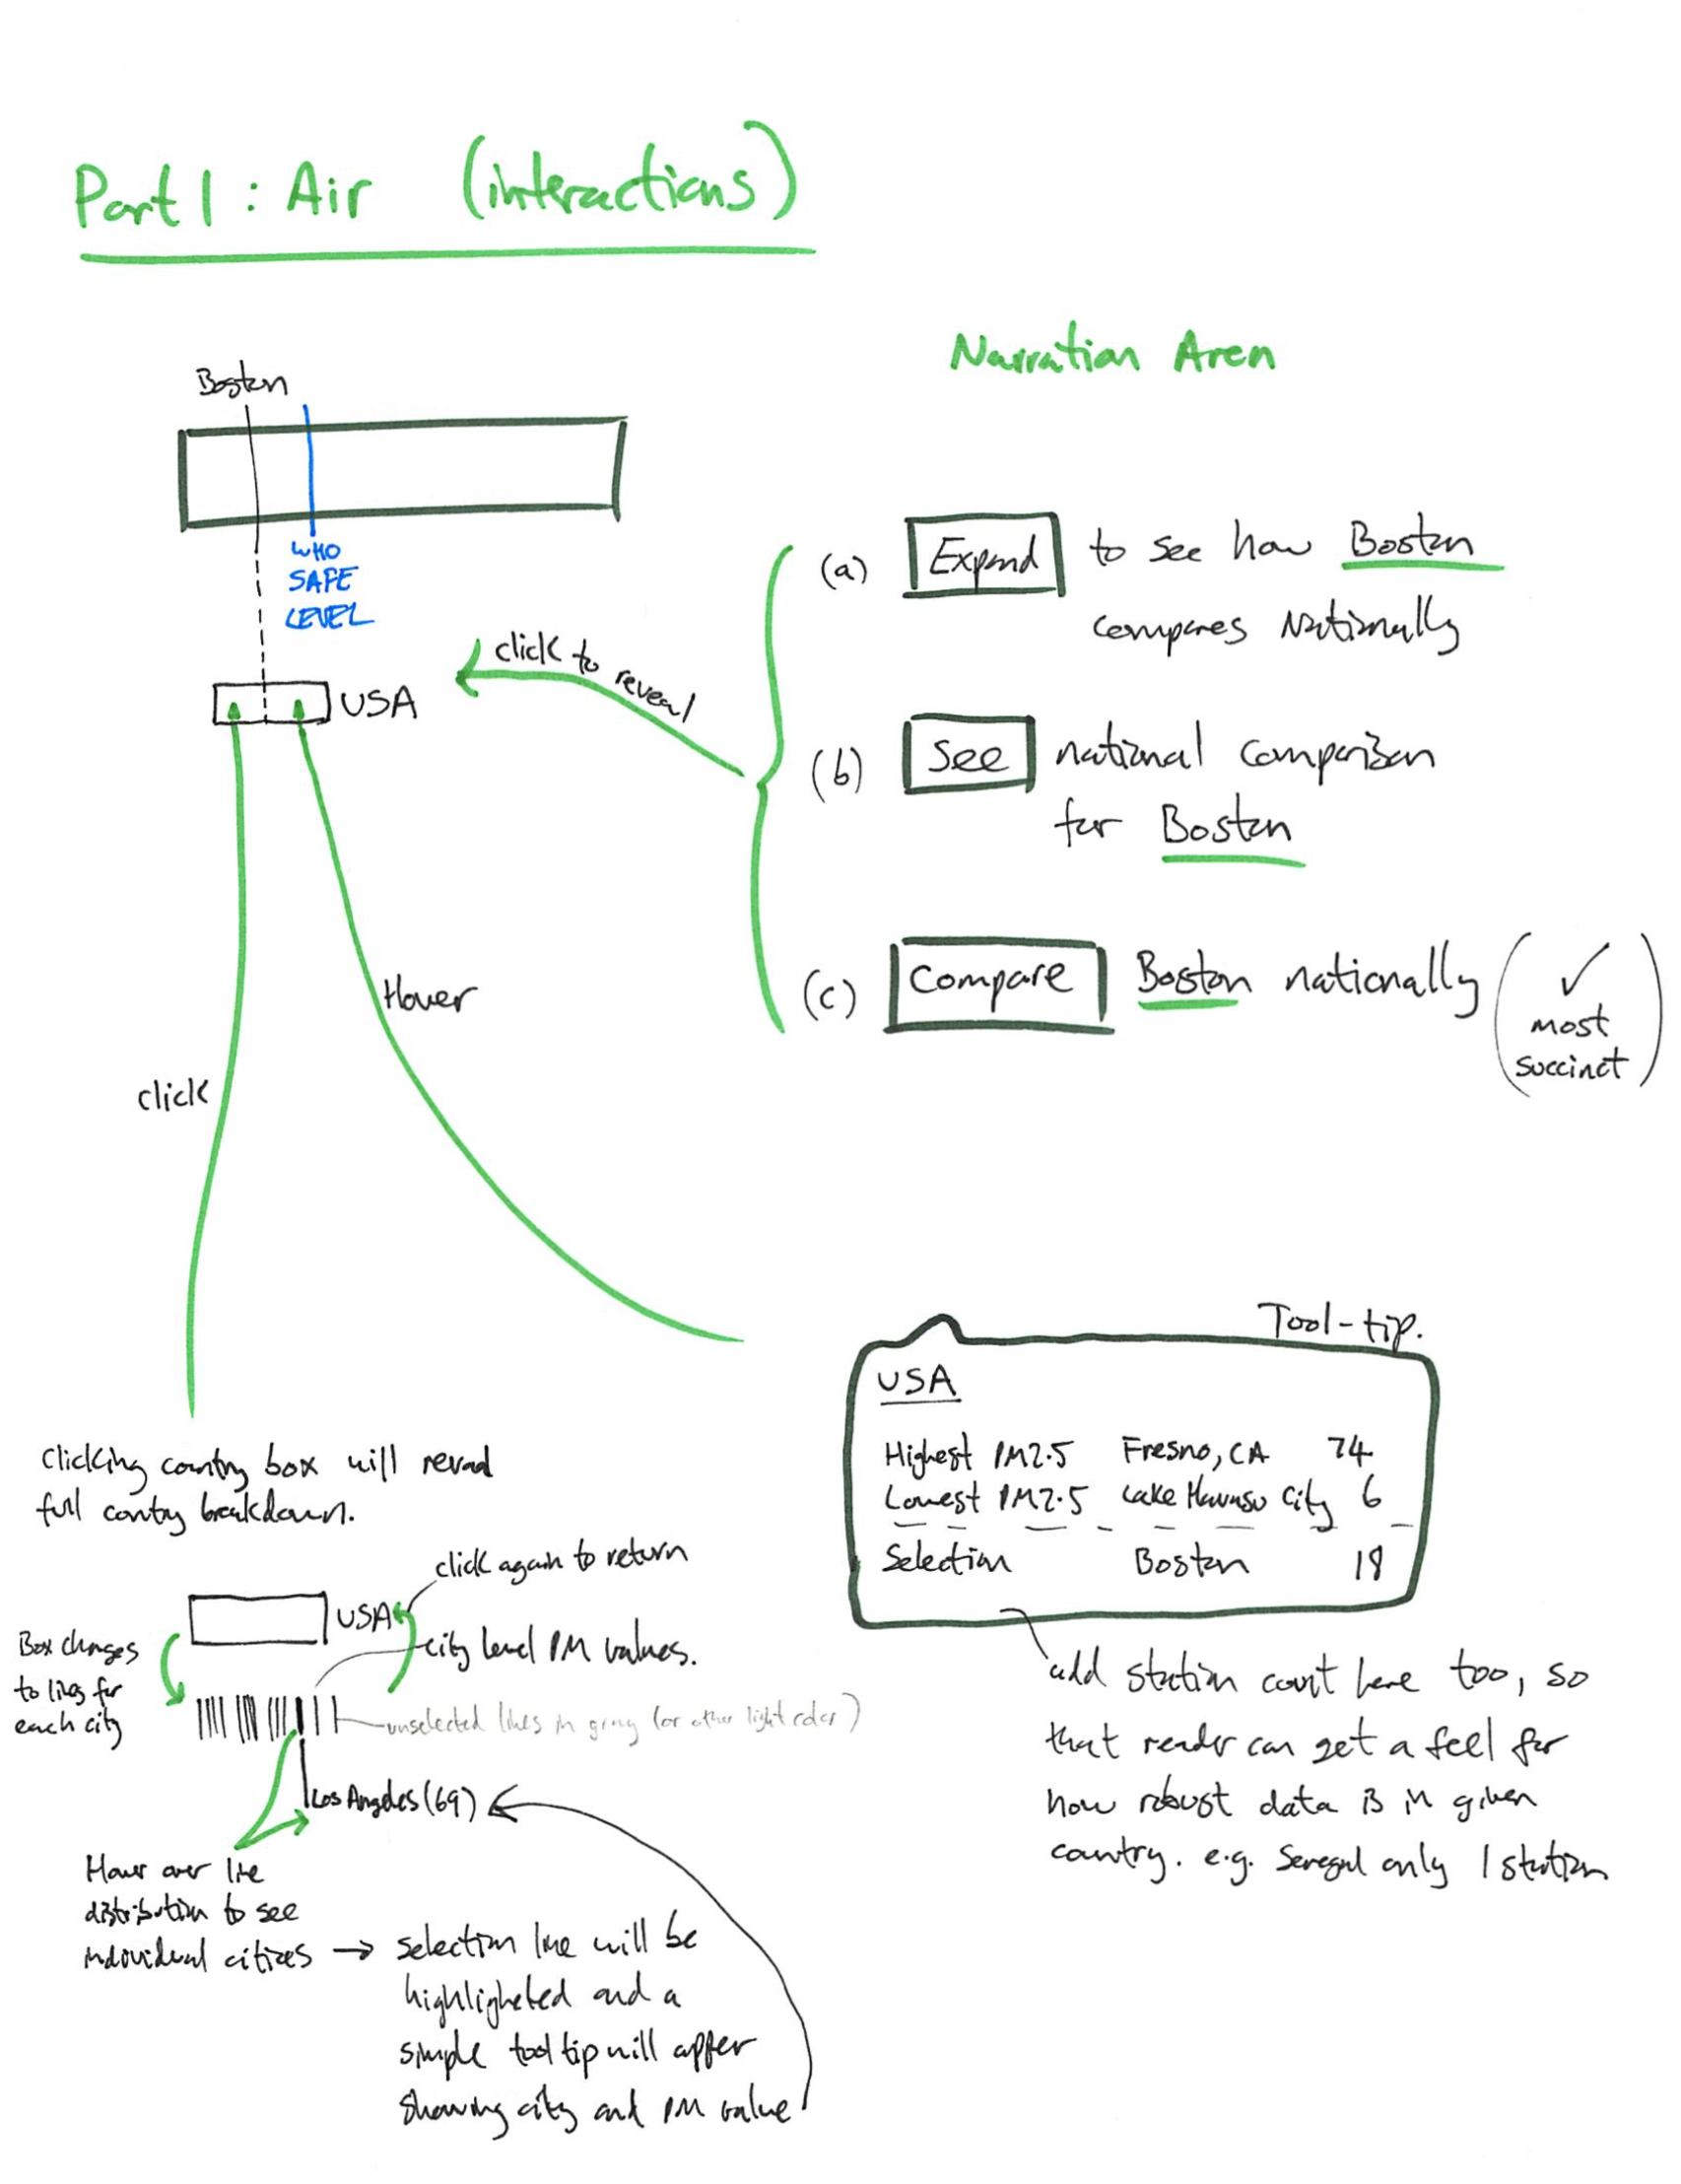 Part 1 : Air (interactions)
Narration Area
Boston
WHO
SAFE
LEVEL
USA
click to reveal
(a) Expand to see how Boston
compares Nationally
(b) See national comparison
for Boston
(c) Compare Boston nationally (✓
most
succinct)
Hover
click
Tool-tip.
USA
Highest PM2.5 Fresno, CA 74
Lowest PM2.5 Lake Havasu City 6
Selection Boston 18
add station count here too, so
that reader can get a feel for
how robust data is in given
country. e.g. Senegal only 1 station
Clicking country box will reveal
full contry breakdown.
click again to return
USA
city level PM values.
Box changes
to lines for
each city
unselected lines in gray (or other light color)
Los Angeles (69)
Hover over line
distribution to see
individual citizes → selection line will be
highligheted and a
simple tool tip will apper
showing city and PM value